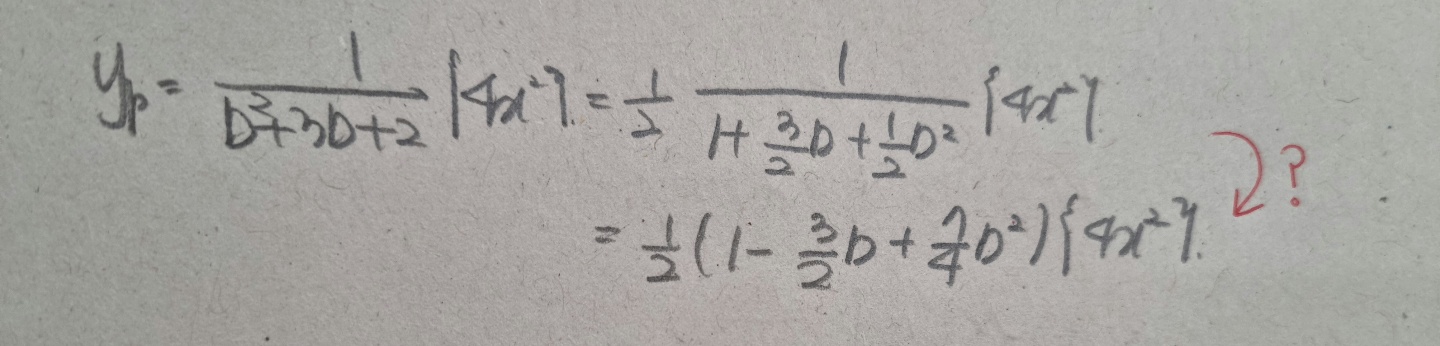 y_p = \frac{1}{D^2+3D+2} {4x^2}. = \frac{1}{2} \frac{1}{1+\frac{3}{2}D+\frac{1}{2}D^2} {4x^2}. ?
= \frac{1}{2} (1 - \frac{3}{2}D + \frac{7}{4}D^2) {4x^2}.